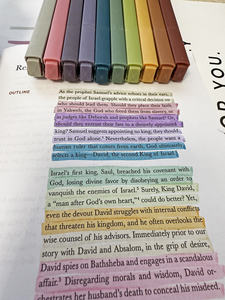 Re
OUTLINE
As the prophet Samuel's advice echoes in their ears,
the people of Israel grapple with a critical decision on
who should lead them. Should they place their faith
in Yahweh, the God who freed them from slavery, or
in judges like Deborah and prophets like Samuel? Or,
should they entrust their fate to a divinely appointed
king? Samuel suggests appointing no king; they should
trust in God alone. Nevertheless, the people want a
human ruler that comes from earth, God ultimately
selects a king—David, the second King of Israel.
Israel's first king, Saul, breached his covenant with
God, losing divine favor by disobeying an order to
vanquish the enemies of Israel. Surely, King David,
a "man after God's own heart," could do better? Yet,
even the devout David struggles with internal conflicts
that threaten his kingdom, and he often overlooks the
wise counsel of his advisors. Immediately prior to our
story with David and Absalom, in the grip of desire,
David spies on Bathsheba and engages in a scandalous
affair. Disregarding morals and wisdom, David or-
chestrates her husband's death to conceal his misdeed.
OR YOU.